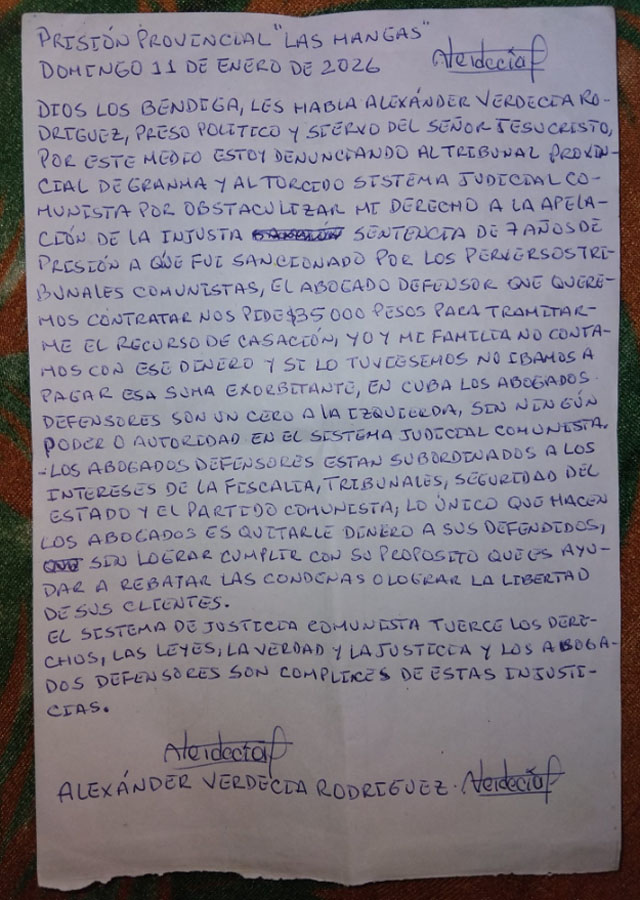 PRISIÓN PROVINCIAL "LAS MANGAS"
DOMINGO 11 DE ENERO DE 2026 AVerdeciaf
DIOS LOS BENDIGA, LES HABLA ALEXÁNDER VERDECIA RO-
DRIGUEZ, PRESO POLITICO Y SIERVO DEL SEÑOR JESUCRISTO,
POR ESTE MEDIO ESTOY DENUNCIANDO AL TRIBUNAL PROVIN-
CIAL DE GRANMA Y AL TORCIDO SISTEMA JUDICIAL CO-
MUNISTA POR OBSTACULIZAR MI DERECHO A LA APELA-
CIÓN DE LA INJUSTA SENTENCIA DE 7 AÑOS DE
PRISIÓN A QUE FUI SANCIONADO POR LOS PERVERSOS TRI-
BUNALES COMUNISTAS, EL ABOGADO DEFENSOR QUE QUERE-
MOS CONTRATAR NOS PIDE $35000 PESOS PARA TRAMITAR-
ME EL RECURSO DE CASACIÓN, YO Y MI FAMILIA NO CONTA-
MOS CON ESE DINERO Y SI LO TUVIESEMOS NO IBAMOS A
PAGAR ESA SUMA EXORBITANTE, EN CUBA LOS ABOGADOS
DEFENSORES SON UN CERO A LA IZQUIERDA, SIN NINGÚN
PODER O AUTORIDAD EN EL SISTEMA JUDICIAL COMUNISTA.
-LOS ABOGADOS DEFENSORES ESTAN SUBORDINADOS A LOS
INTERESES DE LA FISCALIA, TRIBUNALES, SEGURIDAD DEL
ESTADO Y EL PARTIDO COMUNISTA, LO ÚNICO QUE HACEN
LOS ABOGADOS ES QUITARLE DINERO A SUS DEFENDIDOS,
SIN LOGRAR CUMPLIR CON SU PROPOSITO QUE ES AYU-
DAR A REBATAR LAS CONDENAS O LOGRAR LA LIBERTAD
DE SUS CLIENTES.
EL SISTEMA DE JUSTICIA COMUNISTA TUERCE LOS DERE-
CHOS, LAS LEYES, LA VERDAD Y LA JUSTICIA Y LOS ABOGA-
DOS DEFENSORES SON COMPLICES DE ESTAS INJUSTI-
CIAS.
AVerdeciaf
ALEXÁNDER VERDECIA RODRIGUEZ. AVerdeciaf